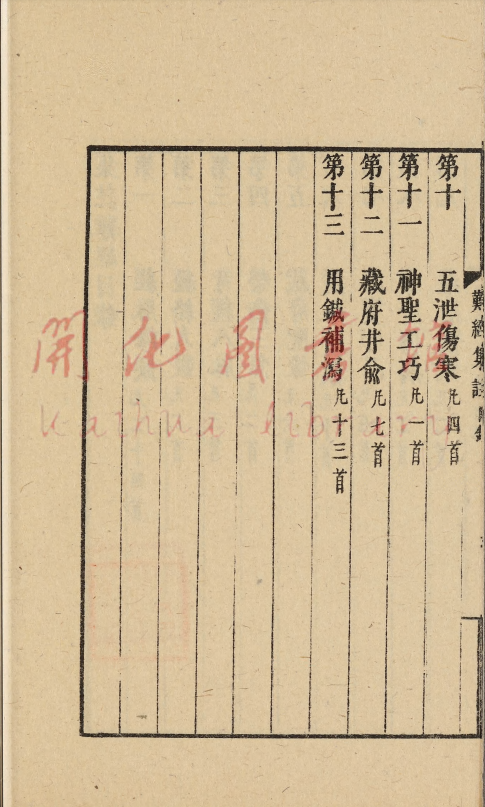 難經集註
第十 五泄傷寒凡四首
第十一 神聖工巧凡一首
第十二 藏府井俞凡七首
第十三 用鍼補瀉凡十三首
開化圖書館
Kaihua library